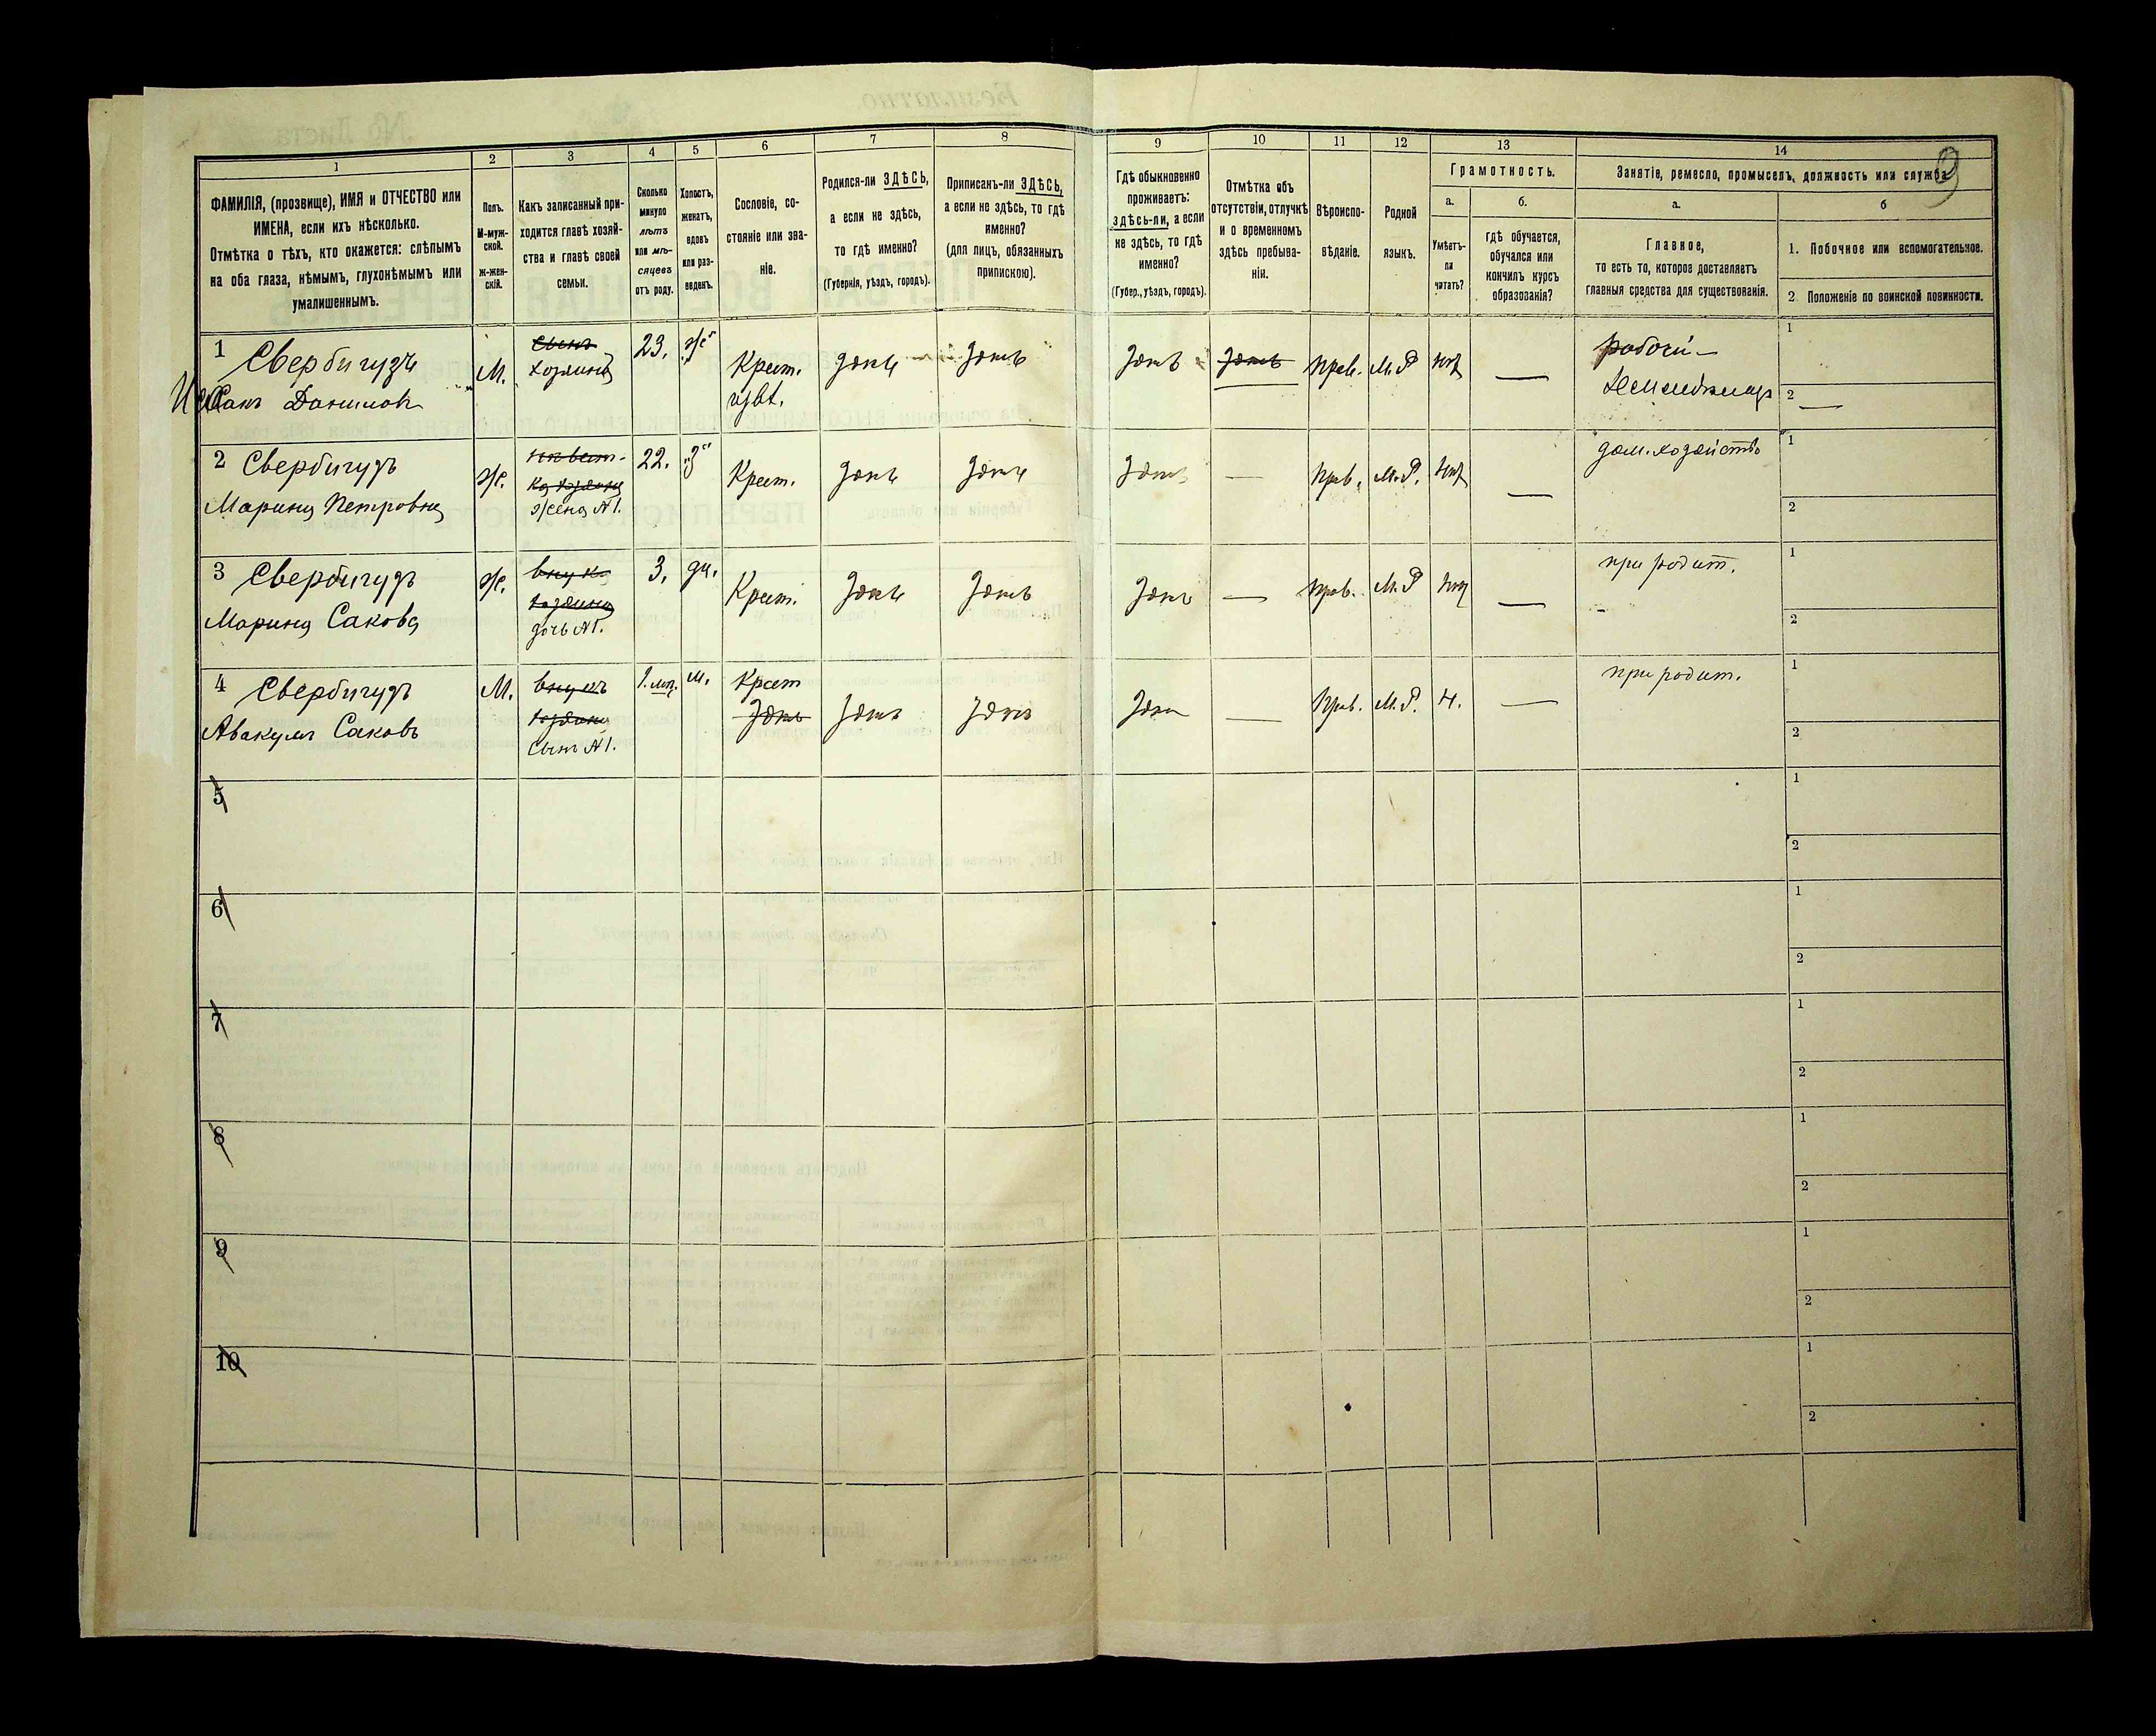 1 2 3 4 5 6 7 8 9 10 11 12 13 14
ФАМИЛІЯ, (прозвище), ИМЯ и ОТЧЕСТВО или
ИМЕНА, если ихъ нѣсколько.
Отмѣтка о тѣхъ, кто окажется: слѣпымъ
на оба глаза, нѣмымъ, глухонѣмымъ или
умалишеннымъ.
Полъ.
М-муж-
ской.
ж-жен-
скій.
Какъ записанный при-
ходится главѣ хозяй-
ства и главѣ своей
семьи.
Сколько
минуло
лѣтъ
или мѣ-
сяцевъ
отъ роду.
Холостъ,
женатъ,
вдовъ
или раз-
веденъ.
Сословіе, со-
стояніе или зва-
ніе.
Родился-ли ЗДѢСЬ,
а если не здѣсь,
то гдѣ именно?
(Губернія, уѣздъ, городъ).
Приписанъ-ли ЗДѢСЬ,
а если не здѣсь, то гдѣ
именно?
(для лицъ, обязанныхъ
припискою).
Гдѣ обыкновенно
проживаетъ:
здѣсь-ли, а если
не здѣсь, то гдѣ
именно?
(Губер., уѣздъ, городъ).
Отмѣтка объ
отсутствіи, отлучкѣ
и о временномъ
здѣсь пребыва-
ніи.
Вѣроиспо-
вѣданіе.
Родной
языкъ.
Грамотность.
а.
Умѣетъ-
ли
читать?
б.
гдѣ обучается,
обучался или
кончилъ курсъ
образованія?
Занятіе, ремесло, промыселъ, должность или служба
9
а.
Главное,
то есть то, которое доставляетъ
главныя средства для существованія.
б
1. Побочное или вспомогательное.
2 Положеніе по воинской повинности.
1 Свербигузъ
Сакъ Даниловъ
М.
сынъ
хозяинъ
23.
ж
Крест.
здѣсь
здѣсь
здѣсь
здѣсь
прав.
М.Р
нѣт
—
рабочій
1
2 —
2 Свербигузъ
Марина Петровна
ж.
невѣст.
ка хозяина
жена №1.
22.
"з"
Крест.
здѣсь
здѣсь
здѣсь
—
прав.
М.Р.
нѣт
—
дом. хозяйство
1
2
3 Свербигузъ
Марина Сакова
ж.
внука
хозяина
дочь №1.
3.
дѣ.
Крест.
здѣсь
здѣсь
здѣсь
—
прав.
М.Р
нѣт
—
при родит.
1
2
4 Свербигузъ
Авакумъ Саковъ
М.
внукъ
хозяина
сынъ №1.
1. мѣс.
м.
Крест
здѣсь
здѣсь
здѣсь
здѣсь
—
прав.
М.Р.
н.
—
при родит.
1
2
5
1
2
6
1
2
7
1
2
8
1
2
9
1
2
10
1
2